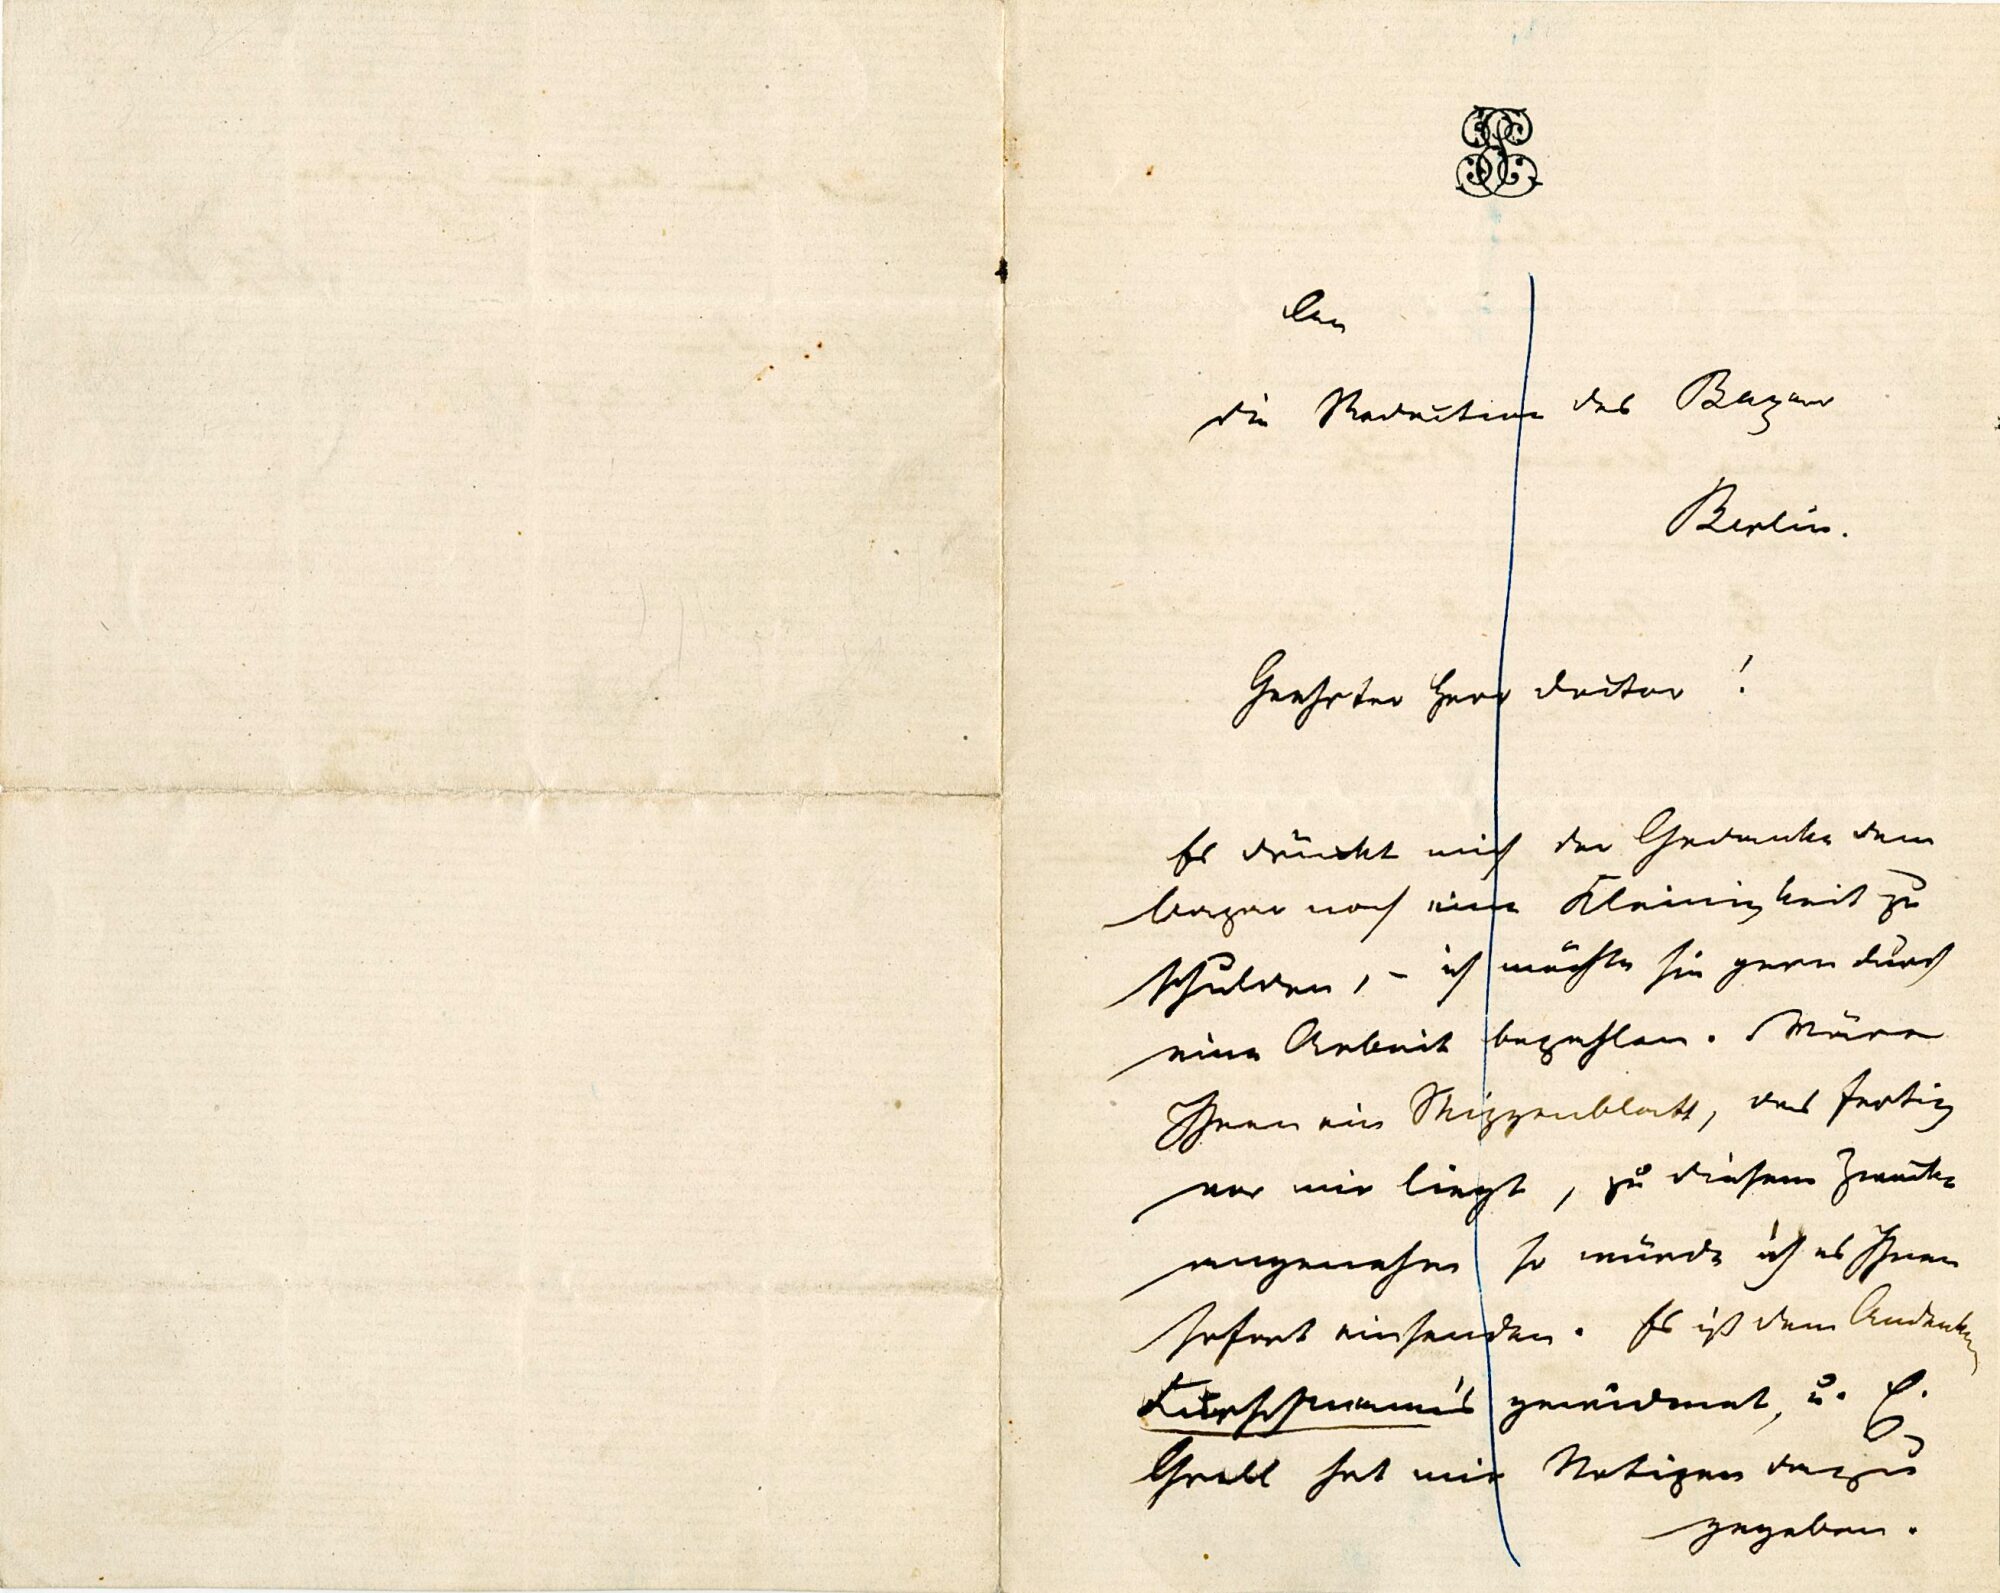 An
die Redaction des Bazar
Berlin.
Geehrter Herr Doctor!
Es drückt mich der Gedanke dem
Bazar noch eine Kleinigkeit zu
schulden, – ich möchte sie gern durch
eine Arbeit bezahlen. Wäre
Ihnen ein Skizzenblatt, das fertig
vor mir liegt, zu diesem Zwecke
angenehm so würde ich es Ihnen
sofort einsenden. Es ist dem Andenken
Kürschmann's gewidmet, u. E.
Grell hat mir Notizen dazu
gegeben.